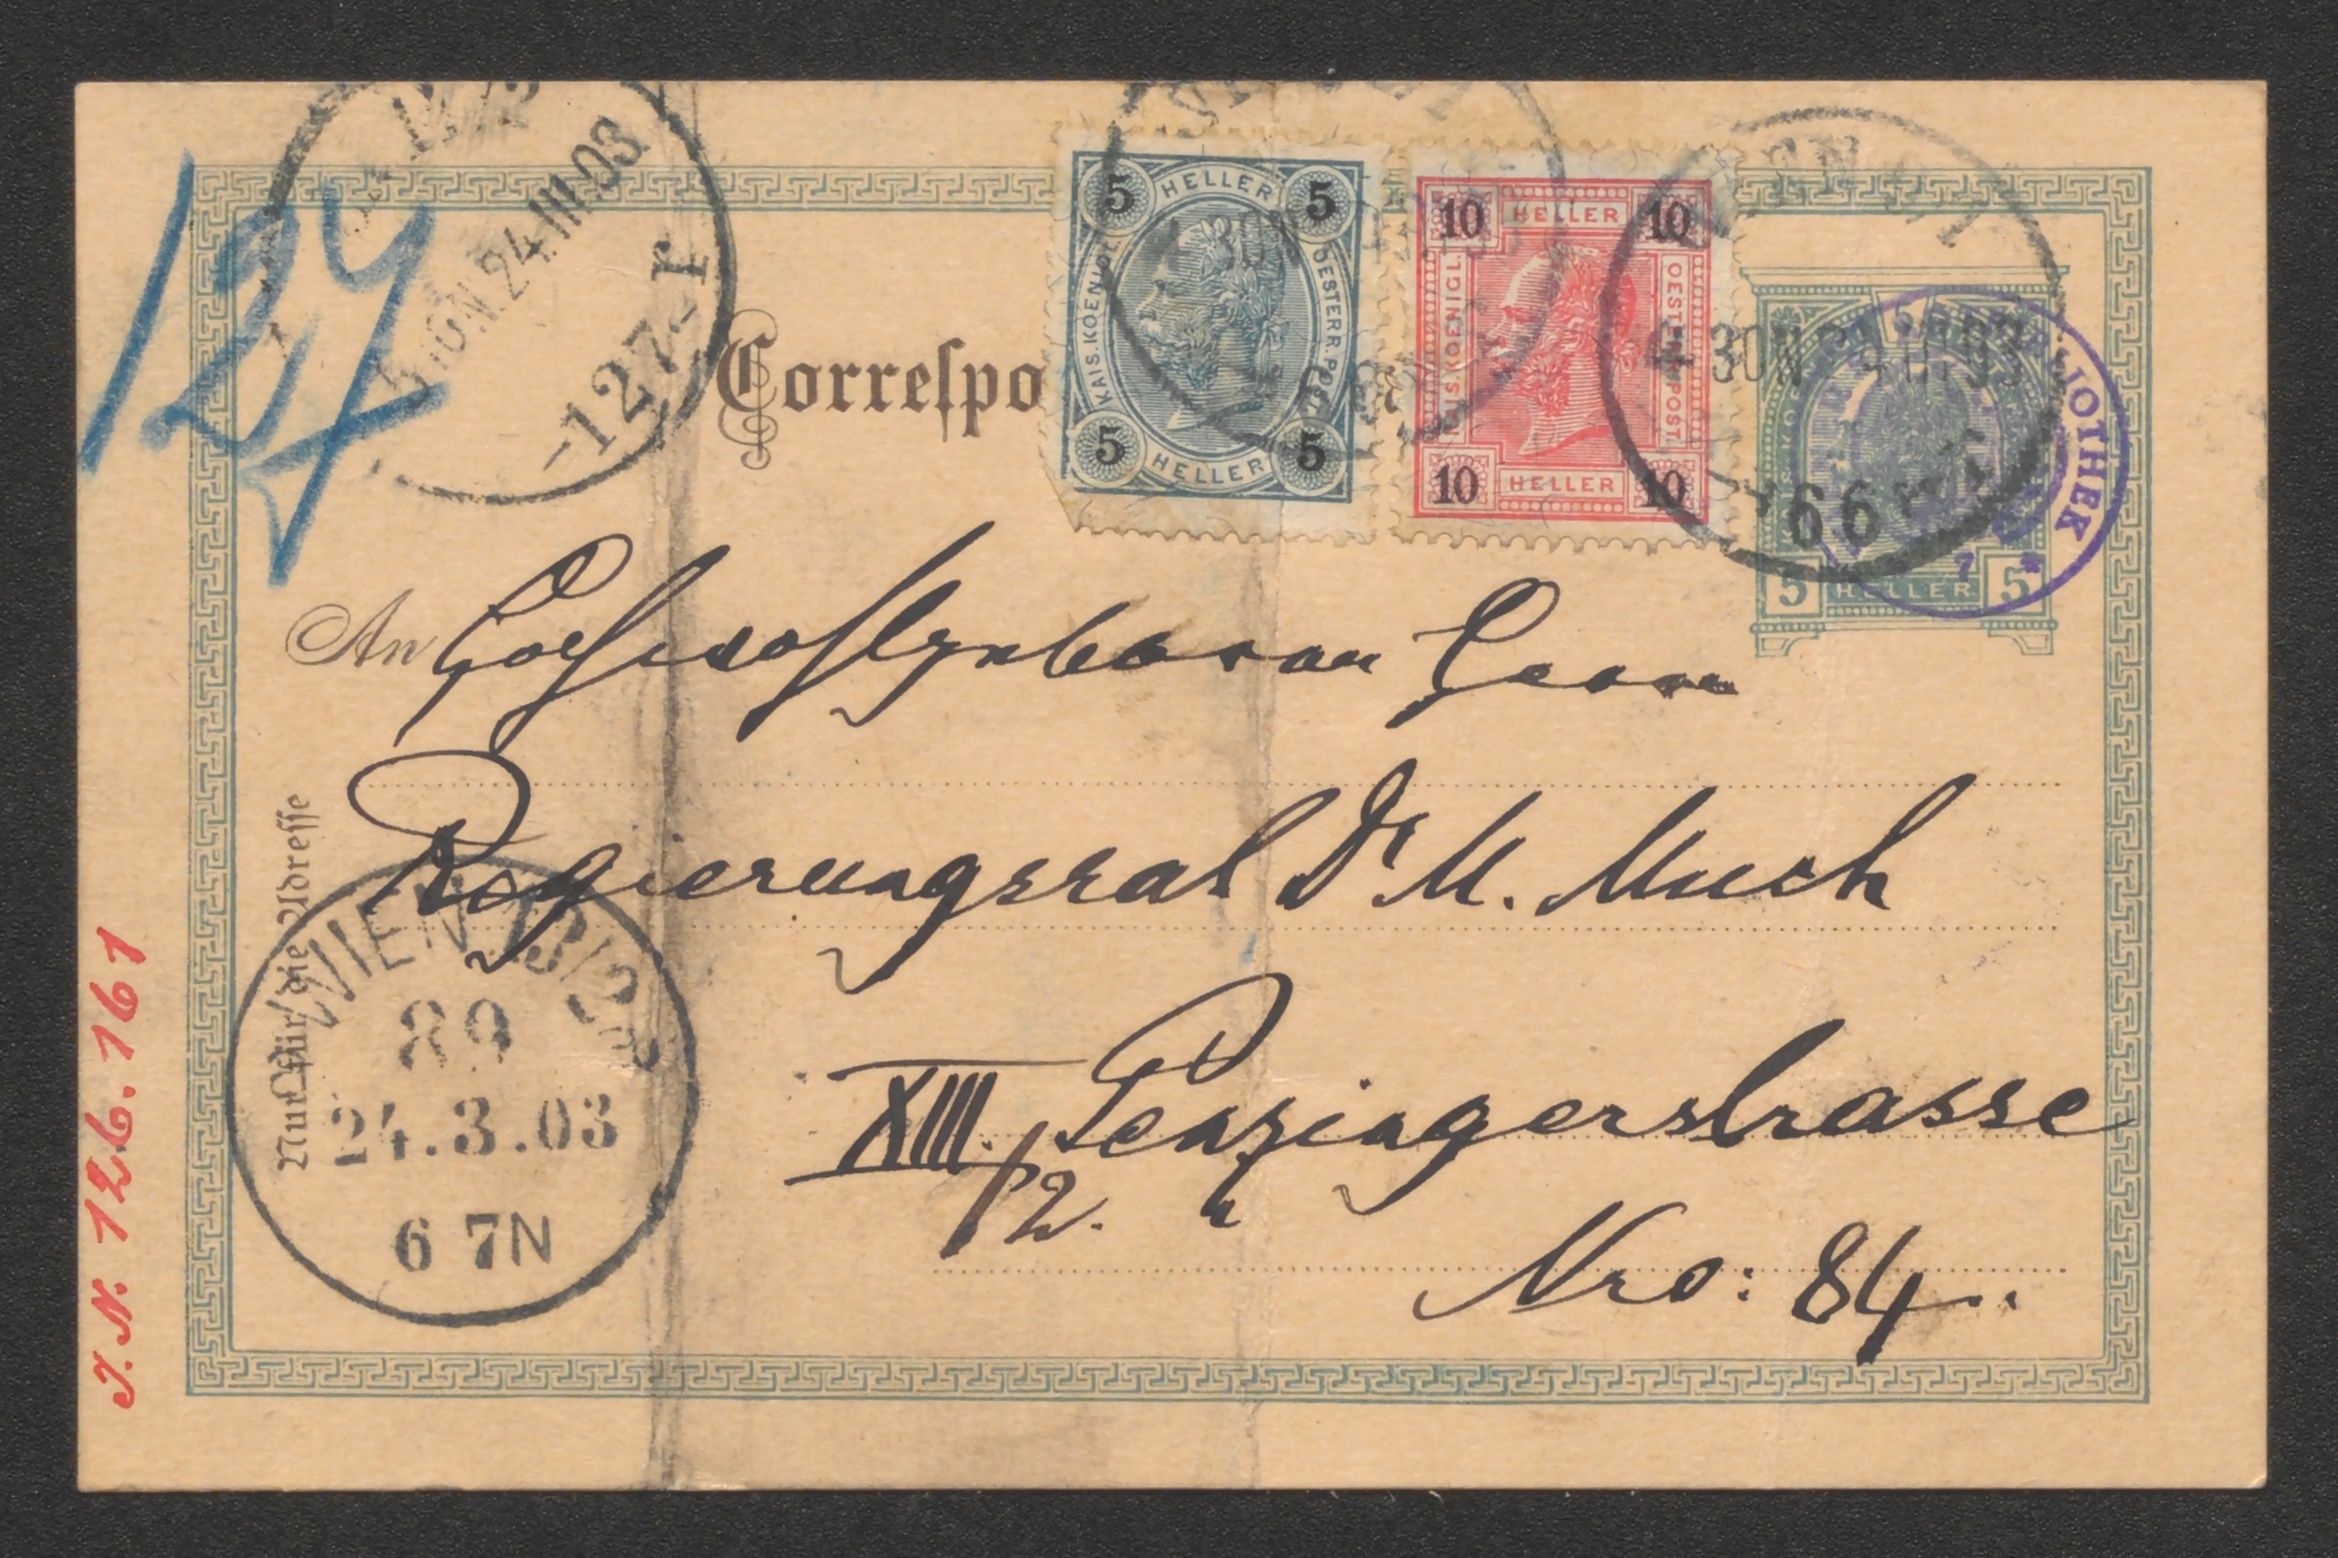 24.III.03
-127-
127
Correspo
5 HELLER 5
KAIS. KOENIGL. OESTERR. POST
5 HELLER 5
10 HELLER 10
KAIS. KOENIGL. OESTERR. POST.
10 HELLER 10
4 30N
66
5 HELLER 5
IOTHEK
An Hochwohlgeboren Herrn
Regierungsrat Dr M. Much
XIII./2. Penzingerstrasse
Nro: 84.
Nur für die Adresse
WIEN
89
24.3.03
6 7N
I.N. 126.161